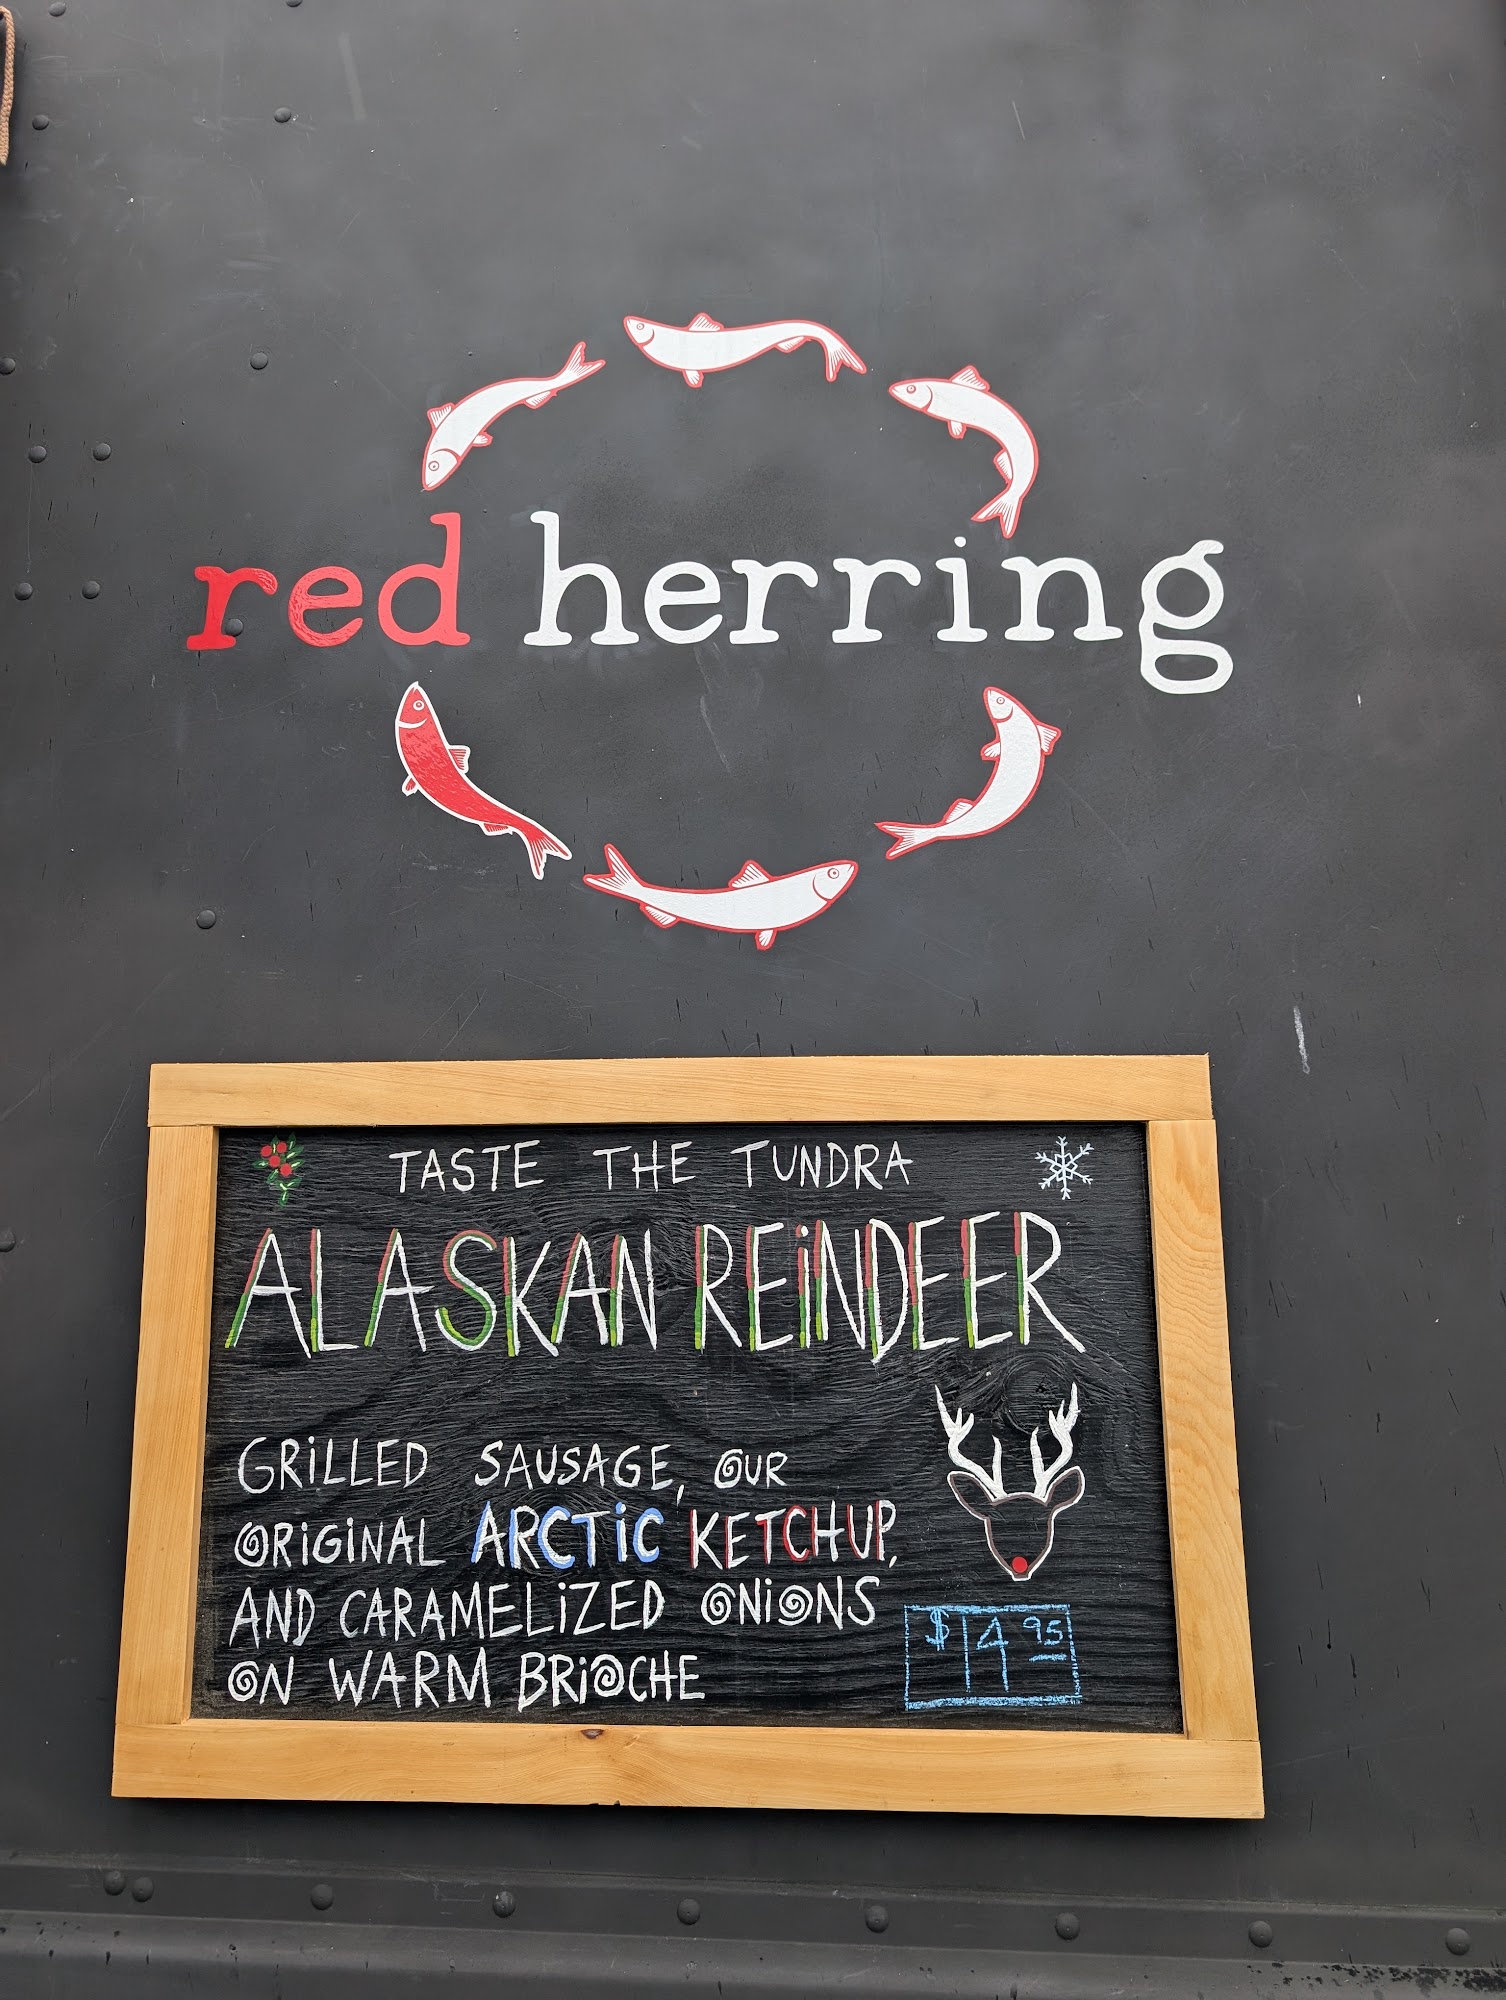 red herring
TASTE THE TUNDRA
ALASKAN REiNDEER
GRiLLED SAUSAGE, OUR
ORiGiNAL ARCTiC KETCHUP,
AND CARAMELiZED ONiONS
ON WARM BRiOCHE
$14 95